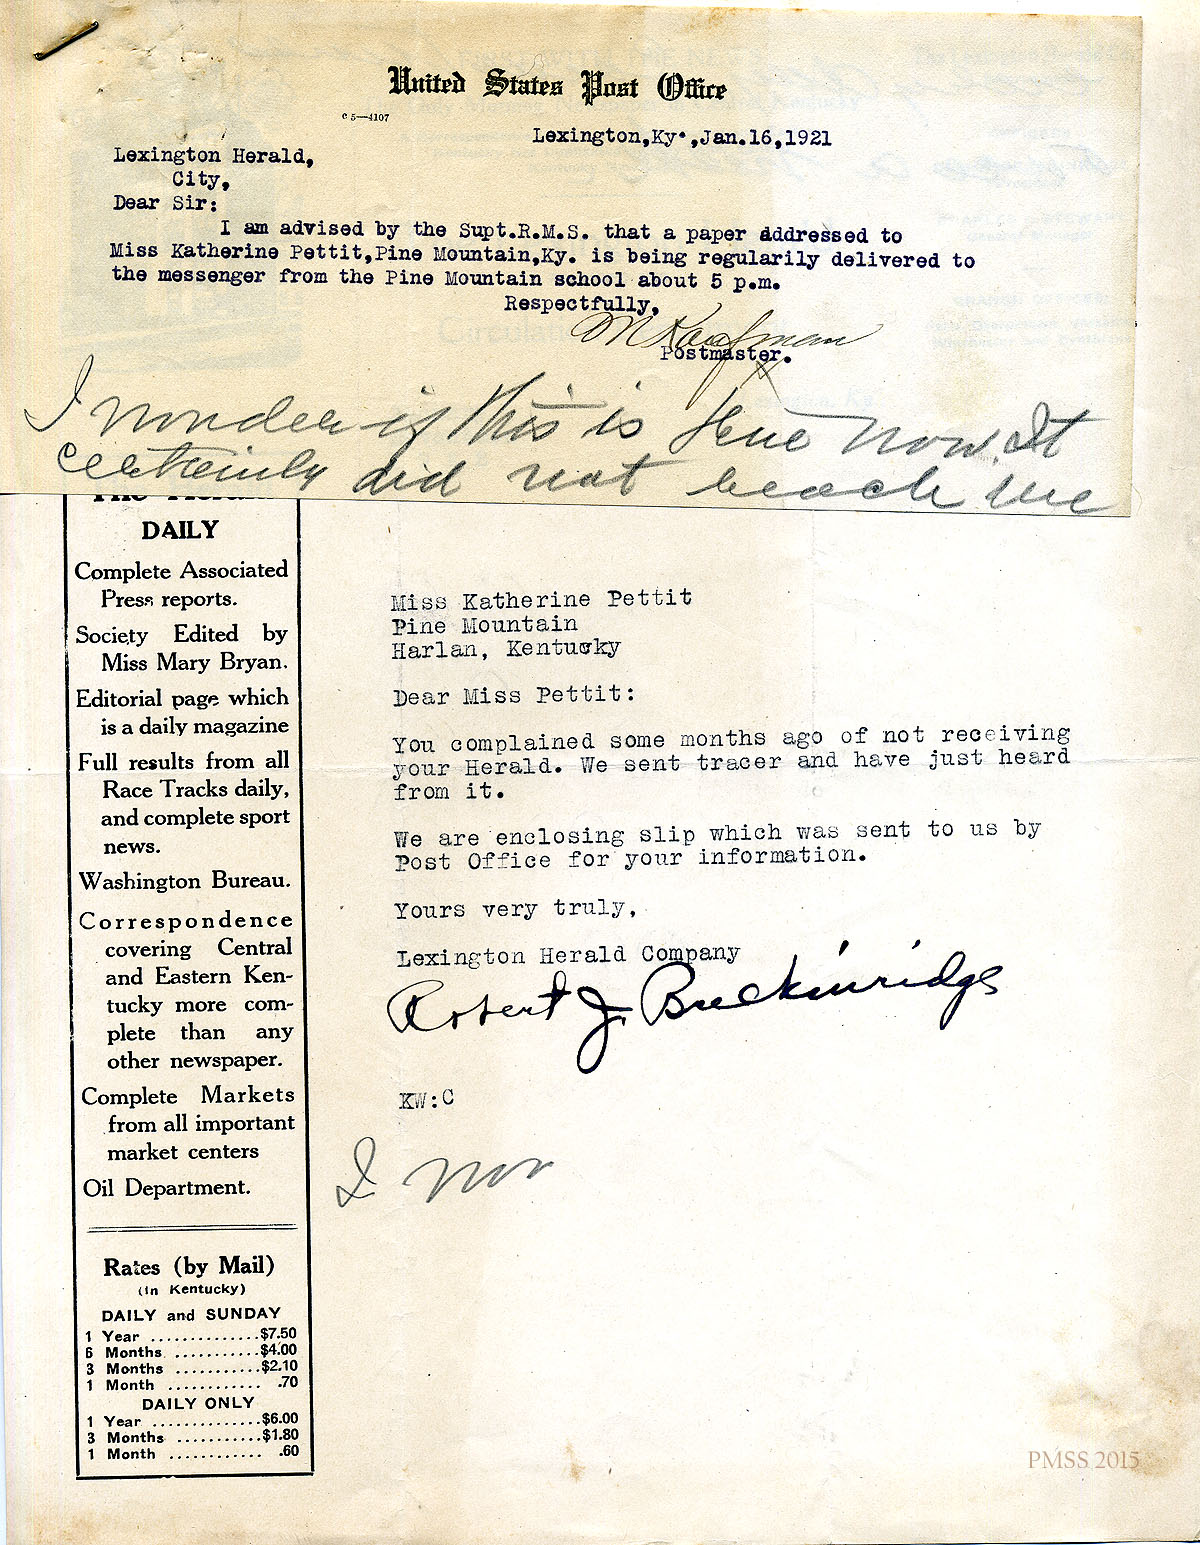 United States Post Office
c 5—4107
Lexington,Ky.,Jan.16,1921
Lexington Herald,
City,
Dear Sir:
I am advised by the Supt.R.M.S. that a paper addressed to
Miss Katherine Pettit,Pine Mountain,Ky. is being regularily delivered to
the messenger from the Pine Mountain school about 5 p.m.
Respectfully,
M Kaufman
Postmaster.
I wonder if this is true now. It
certainly did not reach me
DAILY
Complete Associated
Press reports.
Society Edited by
Miss Mary Bryan.
Editorial page which
is a daily magazine
Full results from all
Race Tracks daily,
and complete sport
news.
Washington Bureau.
Correspondence
covering Central
and Eastern Ken-
tucky more com-
plete than any
other newspaper.
Complete Markets
from all important
market centers
Oil Department.
Rates (by Mail)
(In Kentucky)
DAILY and SUNDAY
1 Year ..............$7.50
6 Months ...........$4.00
3 Months ...........$2.10
1 Month ............ .70
DAILY ONLY
1 Year ..............$6.00
3 Months ...........$1.80
1 Month ............ .60
Miss Katherine Pettit
Pine Mountain
Harlan, Kentucky
Dear Miss Pettit:
You complained some months ago of not receiving
your Herald. We sent tracer and have just heard
from it.
We are enclosing slip which was sent to us by
Post Office for your information.
Yours very truly,
Lexington Herald Company
Robert J. Breckinridge
KW:C
I won
PMSS 2015